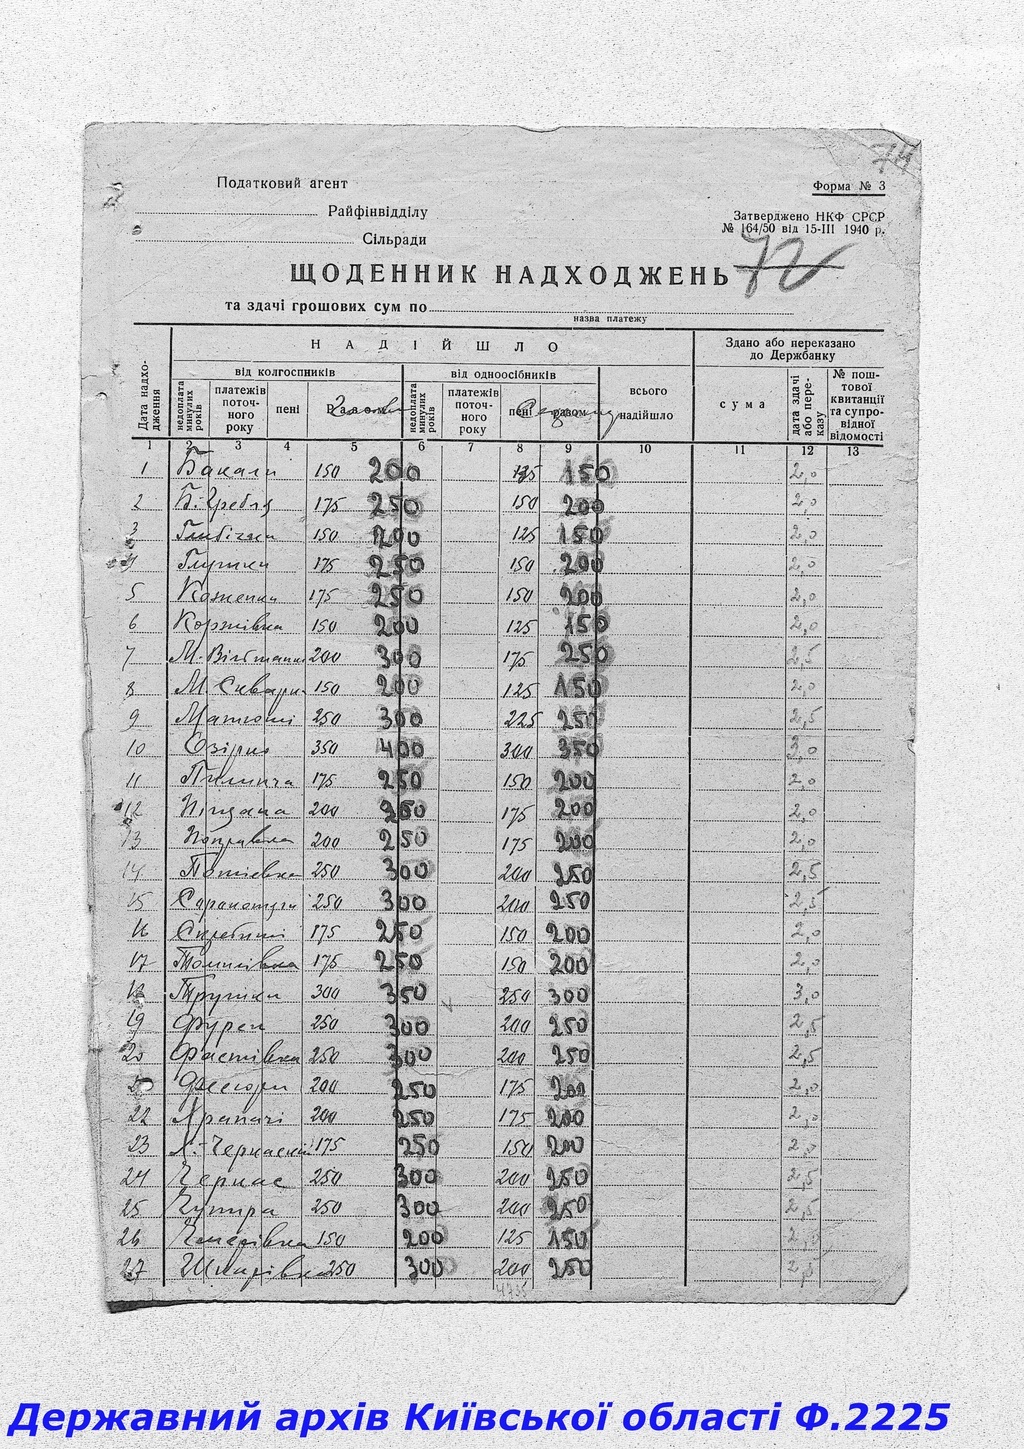 74
Податковий агент
Форма № 3
Райфінвідділу
Затверджено НКФ СРСР
№ 164/50 від 15-III 1940 р.
Сільради
ЩОДЕННИК НАДХОДЖЕНЬ 72
та здачі грошових сум по
назва платежу
Дата надходження
НАДІЙШЛО
Здано або переказано до Держбанку
від колгоспників
від одноосібників
всього надійшло
сума
дата здачі або переказу
№ поштової квитанції та супровідної відомості
недоплата минулих років
платежів поточного року
пені
разом
недоплата минулих років
платежів поточного року
пені
разом
1 2 3 4 5 6 7 8 9 10 11 12 13
1 Бакали 150 200 125 150 2,0
2 Б. Гребля 175 250 150 200 2,0
3 Глибічка 150 200 125 150 2,0
4 Глушки 175 250 150 200 2,0
5 Коженики 175 250 150 200 2,0
6 Коржівка 150 200 125 150 2,0
7 М. Вільшанка 200 300 175 250 2,5
8 М. Сквирка 150 200 125 150 2,0
9 Матюші 250 300 225 250 2,5
10 Озірна 350 400 300 350 3,0
11 Пилипча 175 250 150 200 2,0
12 Піщана 200 250 175 200 2,0
13 Поправка 200 250 175 200 2,0
14 Потіевка 250 300 200 250 2,5
15 250 300 200 250 2,5
16 Скребиші 175 250 150 200 2,0
17 Томилівка 175 250 150 200 2,0
18 Трушки 300 350 250 300 3,0
19 Фурси 250 300 200 250 2,5
20 Фастівка 250 300 200 250 2,5
200 250 175 200 2,0
22 Храпачі 200 250 175 200 2,0
23 Черкаський 175 250 150 200 2,0
24 Черкас 250 300 200 250 2,5
25 Чупира 250 300 200 250 2,5
26 Чмирівка 150 200 125 150 2,0
27 Шкарівка 250 300 200 250 2,5
Державний архів Київської області Ф.2225